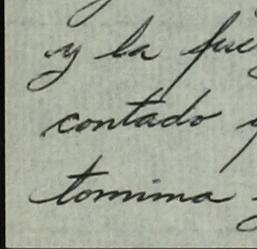 y la fue
contado y
tomima